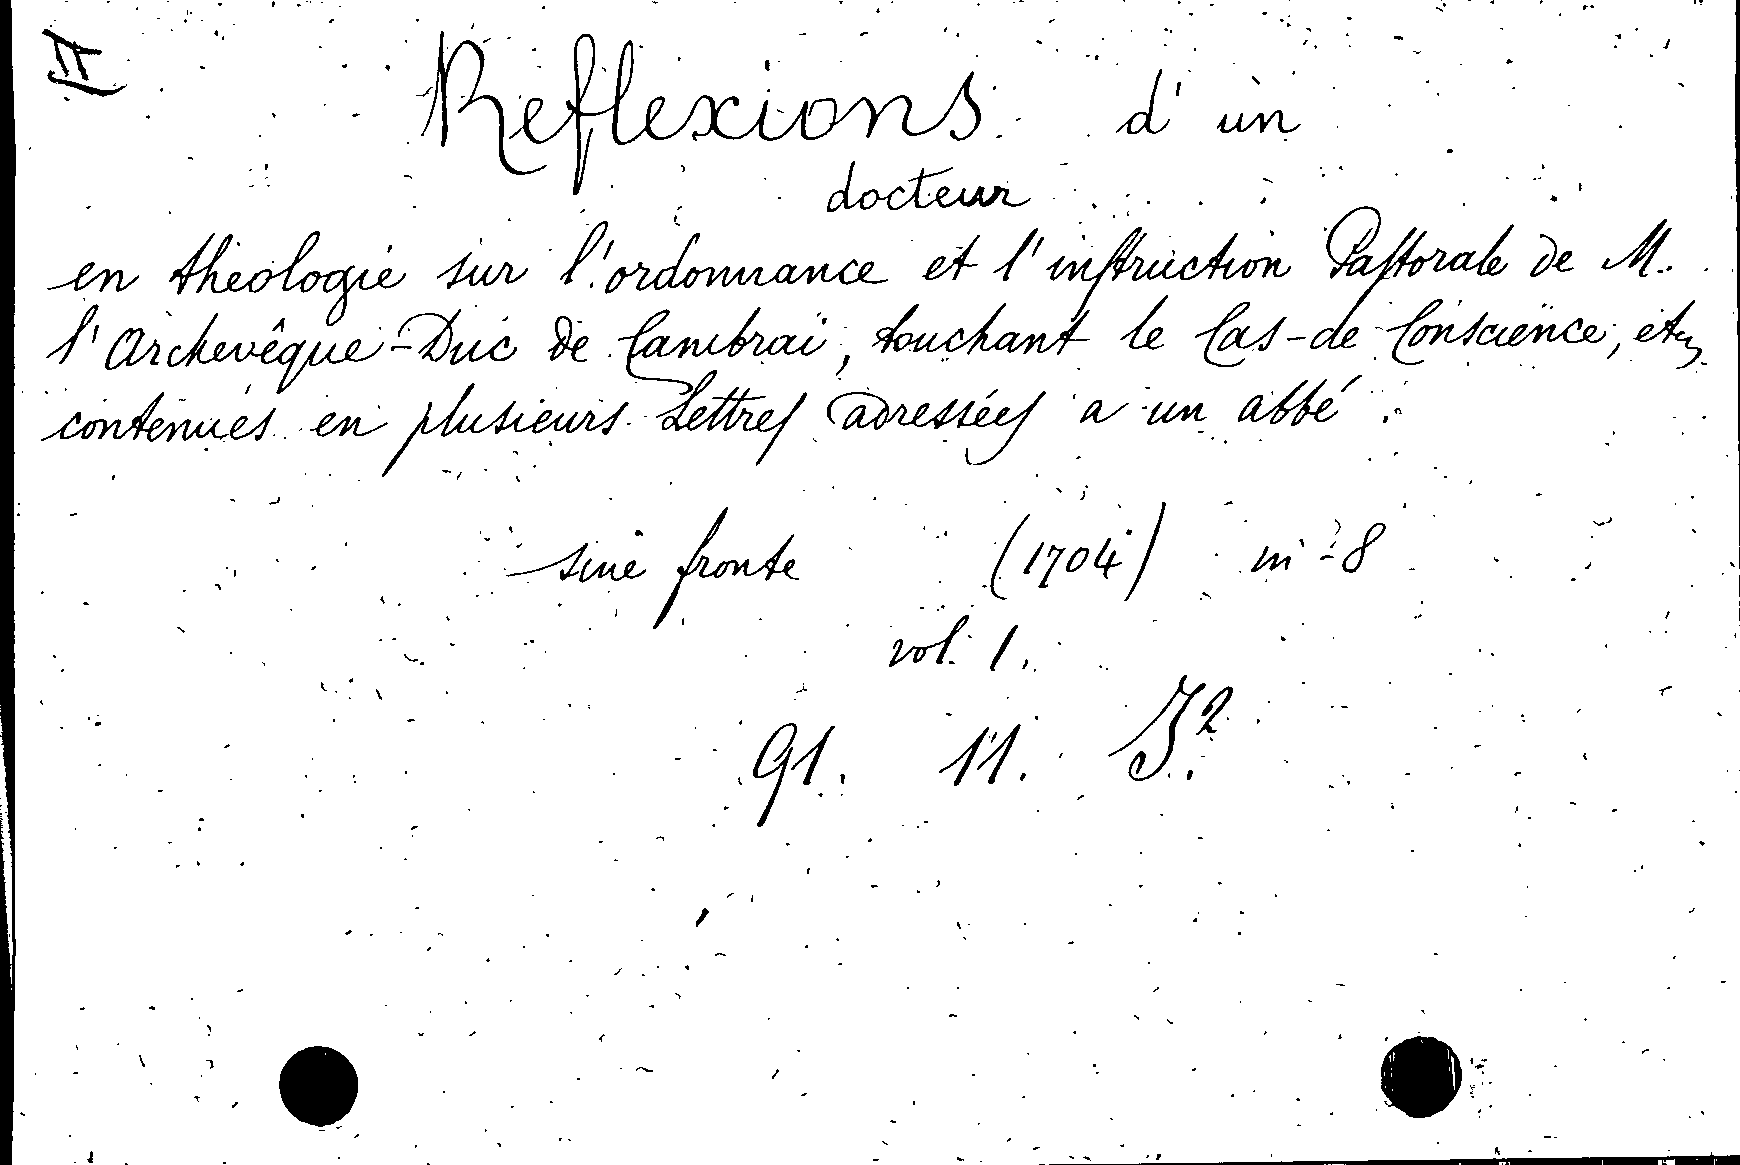 II
Reflexions d'un
docteur
en theologie sur l'ordonnance et l'instruction Pastorale de M.
l'Archevêque-Duc de Cambrai, touchant le Cas-de Conscience, etc
contenues en plusieurs Lettres adressées a un abbé.
sine fronte (1704) in-8
vol. 1.
91. 11. J².